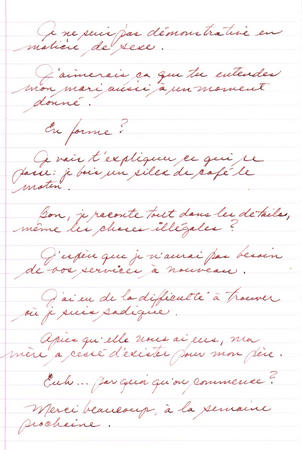 Je ne suis pas démonstrative en
matière de sexe.
J'aimerais ça que tu entendes
mon mari aussi à un moment
donné.
En forme?
Je vais t'expliquer ce qui se
passe: je bois un silex de café le
matin.
Bon, je raconte tout dans les détails,
même les choses illégales?
J'espère que je n'aurai pas besoin
de vos services à nouveau.
J'ai eu de la difficulté à trouver
où je suis sadique.
Après qu'elle nous ai eus, ma
mère a cessé d'exister pour mon père.
Euh... par quoi qu'on commence?
Merci beaucoup, à la semaine
prochaine.